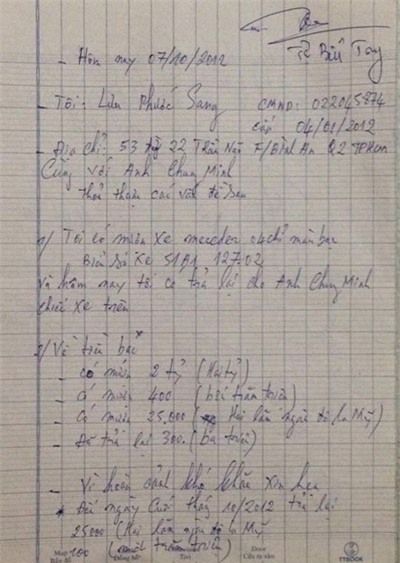 - Hôm nay 07/10/2012
- Tôi: Lưu Phước Sang CMND: 022045874
Cấp 04/01/2012
- Địa chỉ: 53 22 Trần Não F/Bình An Q2 TPHCM
Cùng với Anh Chung Minh
thỏa thuận các vấn đề sau
1/ Tôi có mượn xe mercedes 04 chỗ màu bạc
Biển số xe 51A1 127.02
và hôm nay tôi có trả lại cho Anh Chung Minh
chiếc xe trên
2/ Về tiền bạc
- Có mượn 2 tỷ (Hai tỷ)
- Có mượn 400 (bốn trăm triệu)
- Có mượn 25.000 (Hai lăm ngàn đô la Mỹ)
- Đã trả lại 300. (ba triệu)
- Vì hoàn cảnh khó khăn xin hẹn
Đến ngày Cuối tháng 10/2012 trả lại
25000 (Hai lăm ngàn đô la Mỹ
100 (một trăm triệu)
TTBOOK